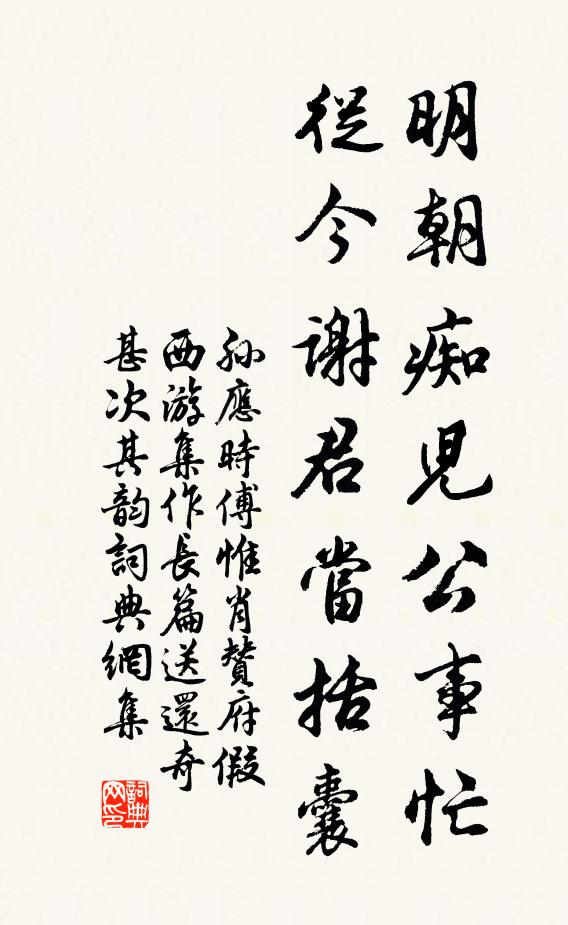 明朝痴兒公事忙
從今謝君當括囊
孙應時傅惟肖贊府假
西游集作長篇送還奇
甚次其韵詞典網集
詞典网印